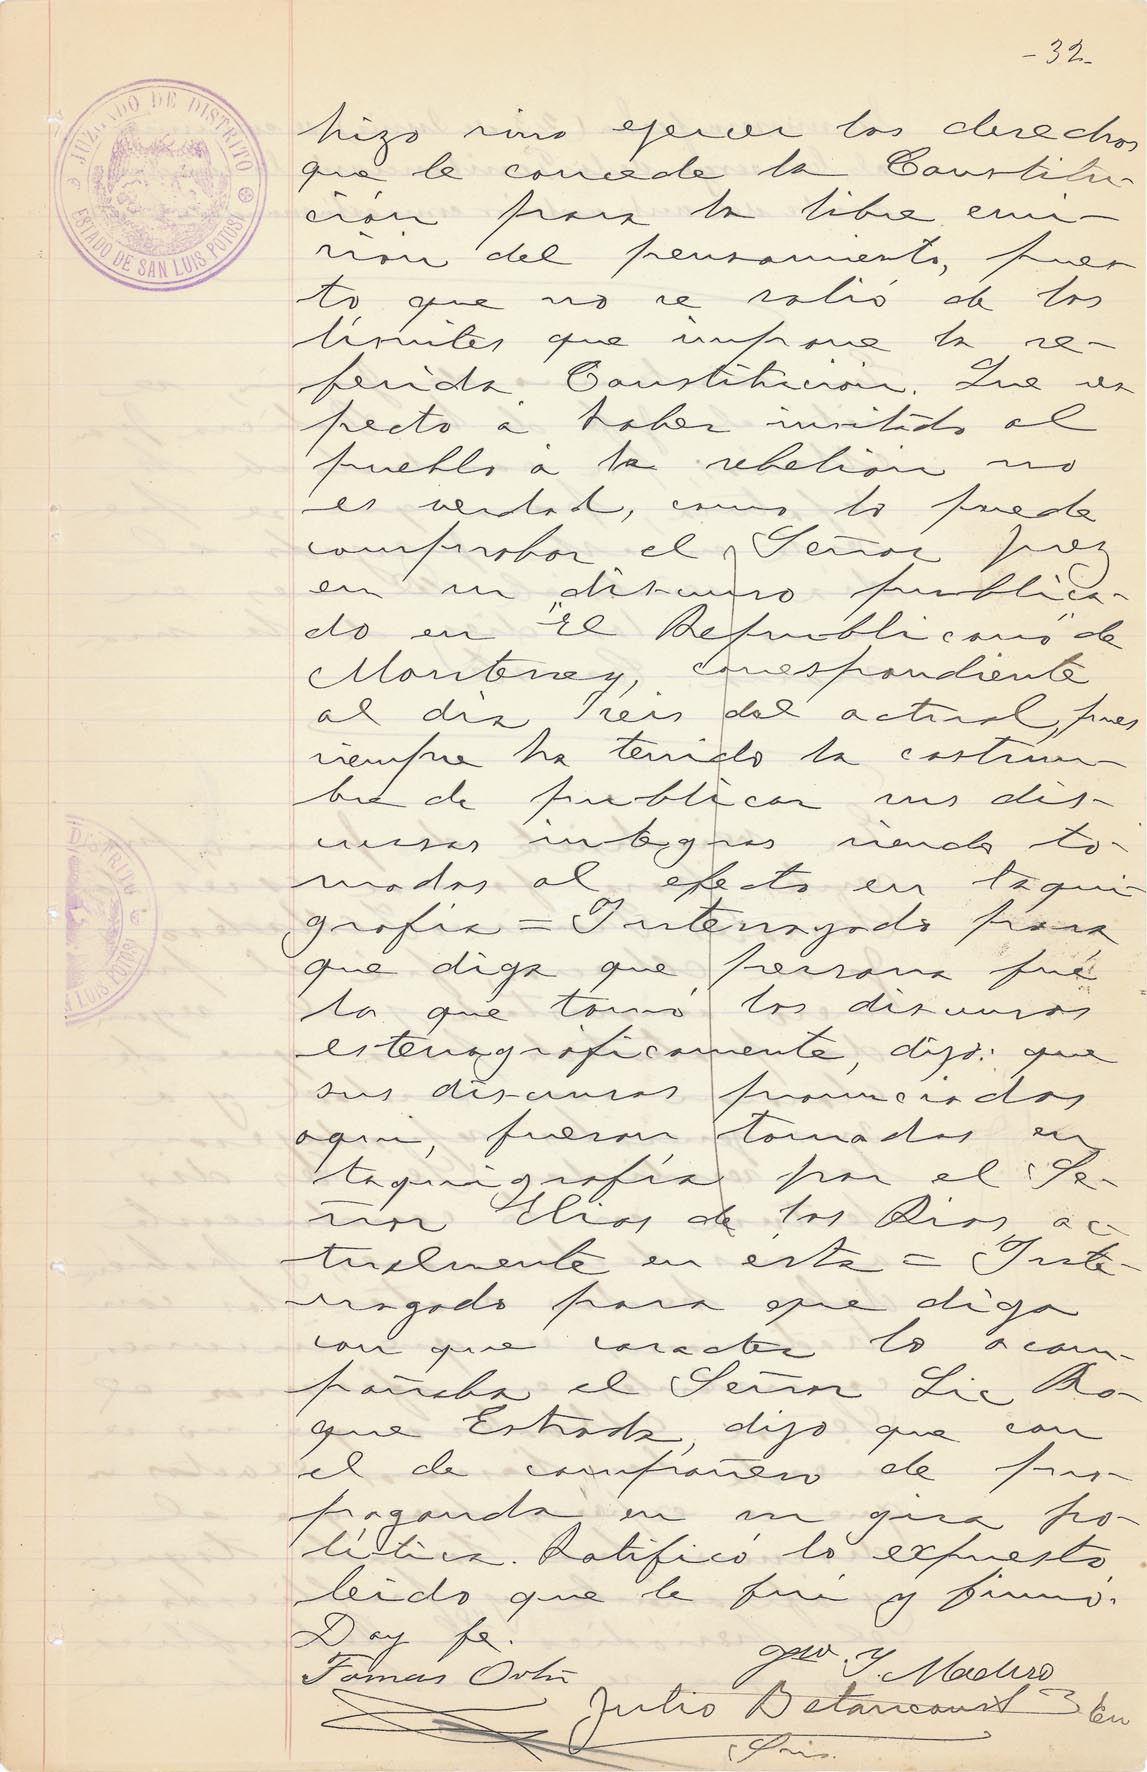 -32-
JUZGADO DE DISTRITO
ESTADO DE SAN LUIS POTOSI
hizo sino ejercer los derechos
que le concede la Constitu-
ción para la libre emi-
sion del pensamiento, pues-
to que no se salió de los
límites que impone la re-
ferida Constitucion. Que res
pecto á haber invitado al
pueblo á la rebelion no
es verdad, como lo puede
comprobar el Señor Juez
en su discurso publica-
do en "El Republicano" de
Monterrey, correspondiente
al dia seis del actual, pues
siempre ha tenido la costum-
bre de publicar sus dis-
cursos integros siendo to-
mados al efecto en taqui-
grafía = Interrogado para
que diga que persona fué
la que tomó los discursos
estenograficamente, dijo: que
sus discursos pronunciados
aqui, fueron tomados en
taquigrafía por el Se-
ñor Elias de los Rios, ac-
tualmente en ésta = Inte-
rrogado para que diga
con que caracter lo acom-
pañaba el Señor Lic Ro-
que Estrada, dijo que con
el de compañero de pro-
paganda en su gira po-
lítica. Ratificó lo expuesto
leido que le fué y firmó.
Doy fe.
Tomas Ortiz
Y. Madero
Julio Betancourt
Srio.
DISTRITO
LUIS POTOSI